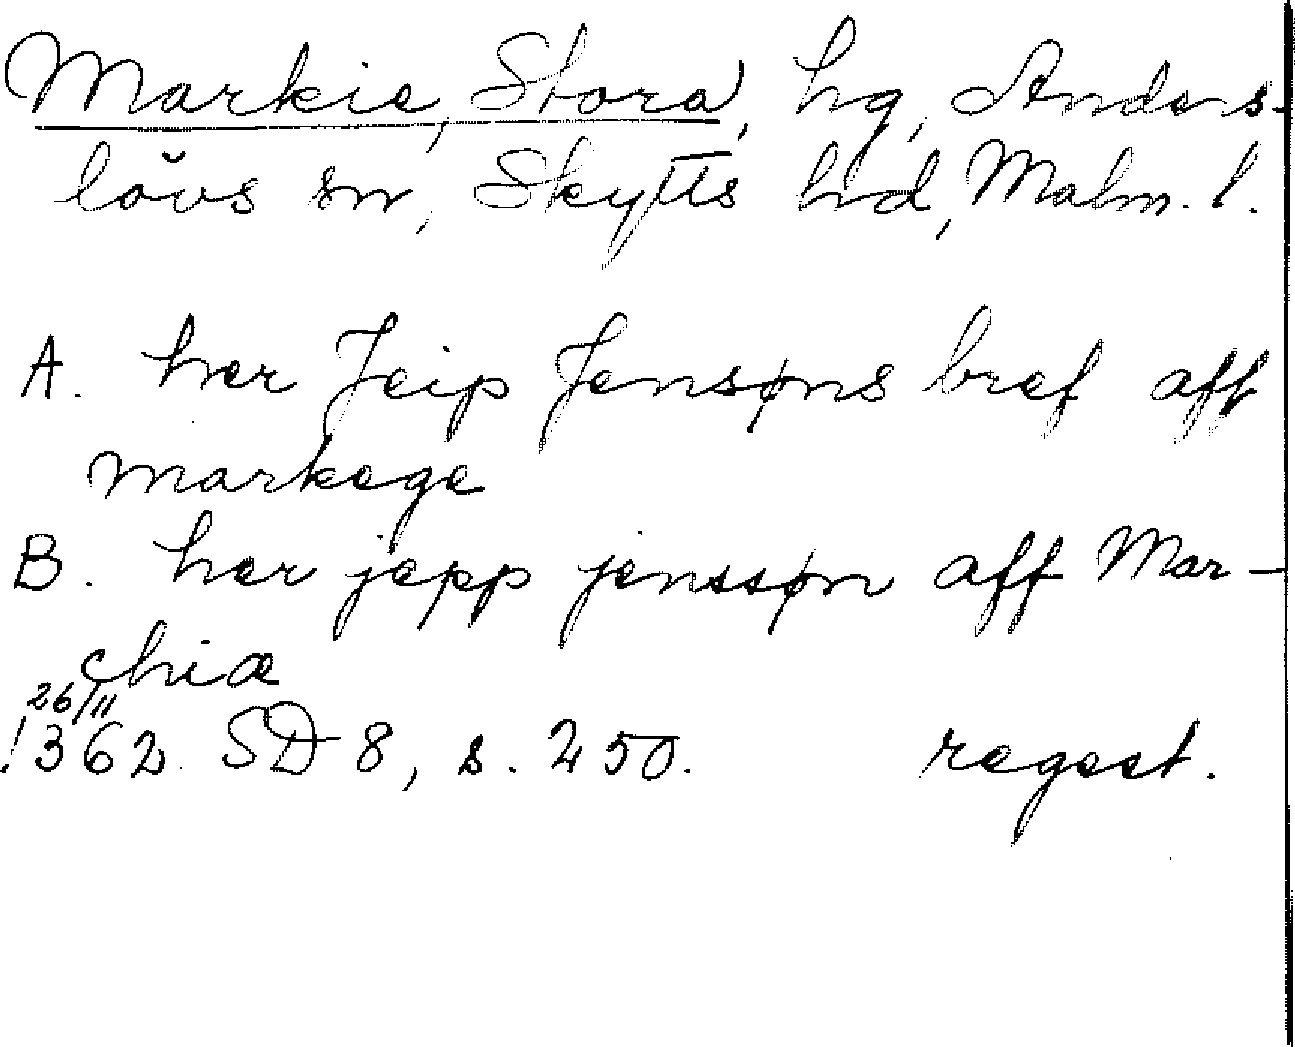 Markie, Stora, hg, Anders-
lövs sn, Skytts hd, Malm. l.
A. her Jeip Jensøns bref aff
markege
B. her jepp jenssøn aff Mar-
chiæ
26/11
1362. SD 8, s. 250. regest.